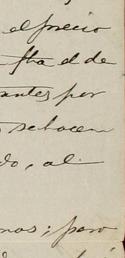 el precio
fha el de
antes por
se hacen
do, al
nos; pero